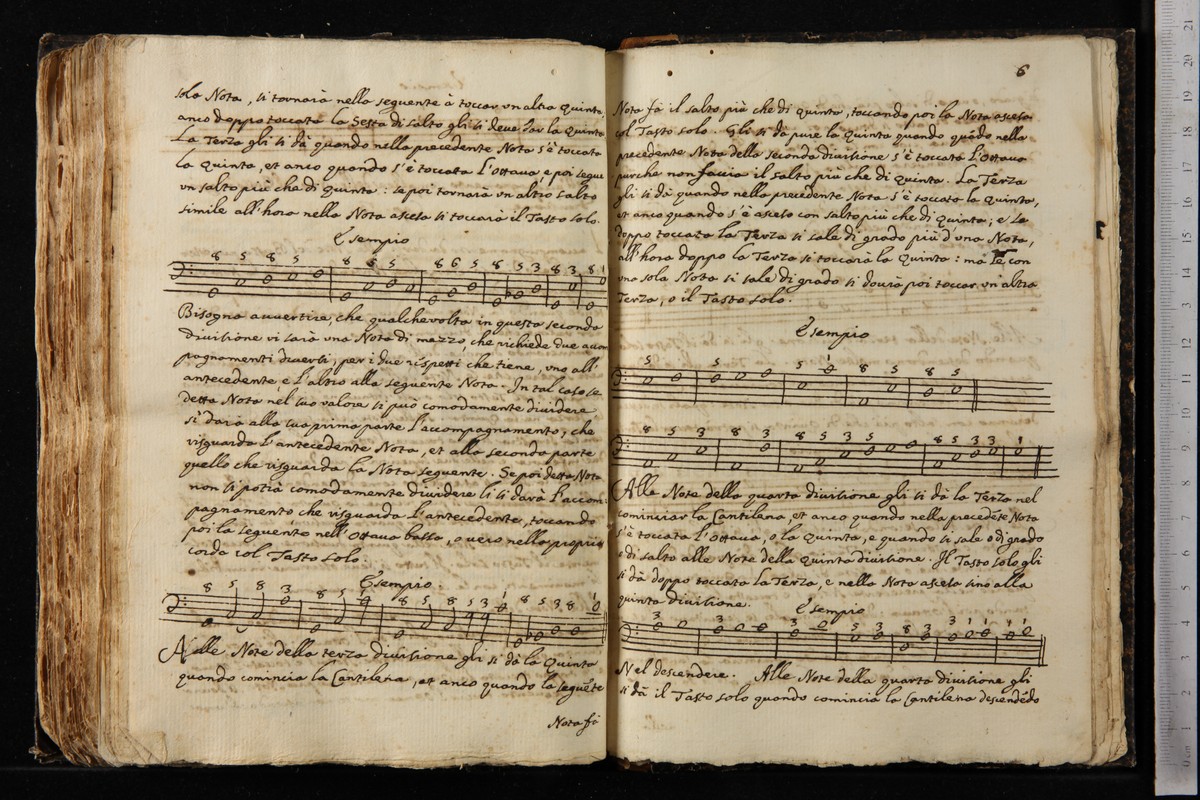 sola Nota, si tornarà nella seguente à toccar vn altra Quinta,
anco doppo toccata la Sesta di salto gli si deue dar la quinta
La Terza gli si dà quando nella precedente Nota s'è toccata
la Quinta, et anco quando s'è toccata l'Ottaua e poi segue
vn salto più che di quinta: se poi tornarà vn altro salto
simile all'hora nella Nota ascesa si toccarà il Tasto solo.
Esempio
8 5 8 5 8 6 5 8 6 5 8 5 3 8 3 8 1
Bisogna auuertire, che qualche volta in questa seconda
diuisione vi sarà una Nota di mezzo, che richiede due accom
pagnamenti diuersi, per i due rispetti che tiene, vno all'
antecedente, e l'altro alla seguente Nota. In tal caso se
detta Nota nel suo valore si può comodamente diuidere
si darà alla sua prima parte l'accompagnamento, che
risguarda l'antecedente Nota, et alla seconda parte
quello che risguarda la Nota seguente. Se poi detta Nota
non si potrà comodamente diuidere li si darà l'accom:
pagnamento che risguarda l'antecedente, toccando
poi la seguente nell'Ottaua bassa, o uero nella propria
corda col Tasto solo.
Esempio.
8 5 8 3 8 5 4 8 5 8 5 3 1 8 5 3 8 1
Alle Note della terza diuisione gli si dà la Quinta
quando comincia la Cantilena, et anco quando la seguēte
Nota fà
6
Nota fà il salto più che di quinta, toccando poi la Nota ascesa
col Tasto solo. Gli si dà pure la Quinta quando quādo nella
precedente Nota della seconda diuisione s'è toccata l'Ottaua
purche non faccia il salto più che di Quinta. La Terza
gli si dà quando nella precedente Nota s'è toccata la Quinta,
et anco quando s'è asceso con salto più che di Quinta; e se
doppo toccata la Terza si sale di grado più d'una Nota,
all'hora doppo la Terza si toccarà la Quinta: ma se con
una sola Nota si sale di grado si dourà poi toccar vn altra
Terza, o il Tasto solo.
Esempio
5 5 5 1 8 5 8 5
8 5 3 8 3 8 5 3 5 8 5 3 3 1
Alle Note della quarta diuisione gli si dà la Terza nel
cominciar la Cantilena, et anco quando nella precedēte Nota
s'è toccata l'Ottaua, o la Quinta, e quando si sale o di grado
o di salto alle Note della Quinta diuisione. Il Tasto solo gli
si dà doppo toccata la Terza, e nella Nota ascesa sino alla
quinta diuisione.
Esempio
3 3 3 5 3 8 3 1 1 1 1
Nel descendere. Alle Note della quarta diuisione gli
si dà il Tasto solo quando comincia la Cantilena descendēdo